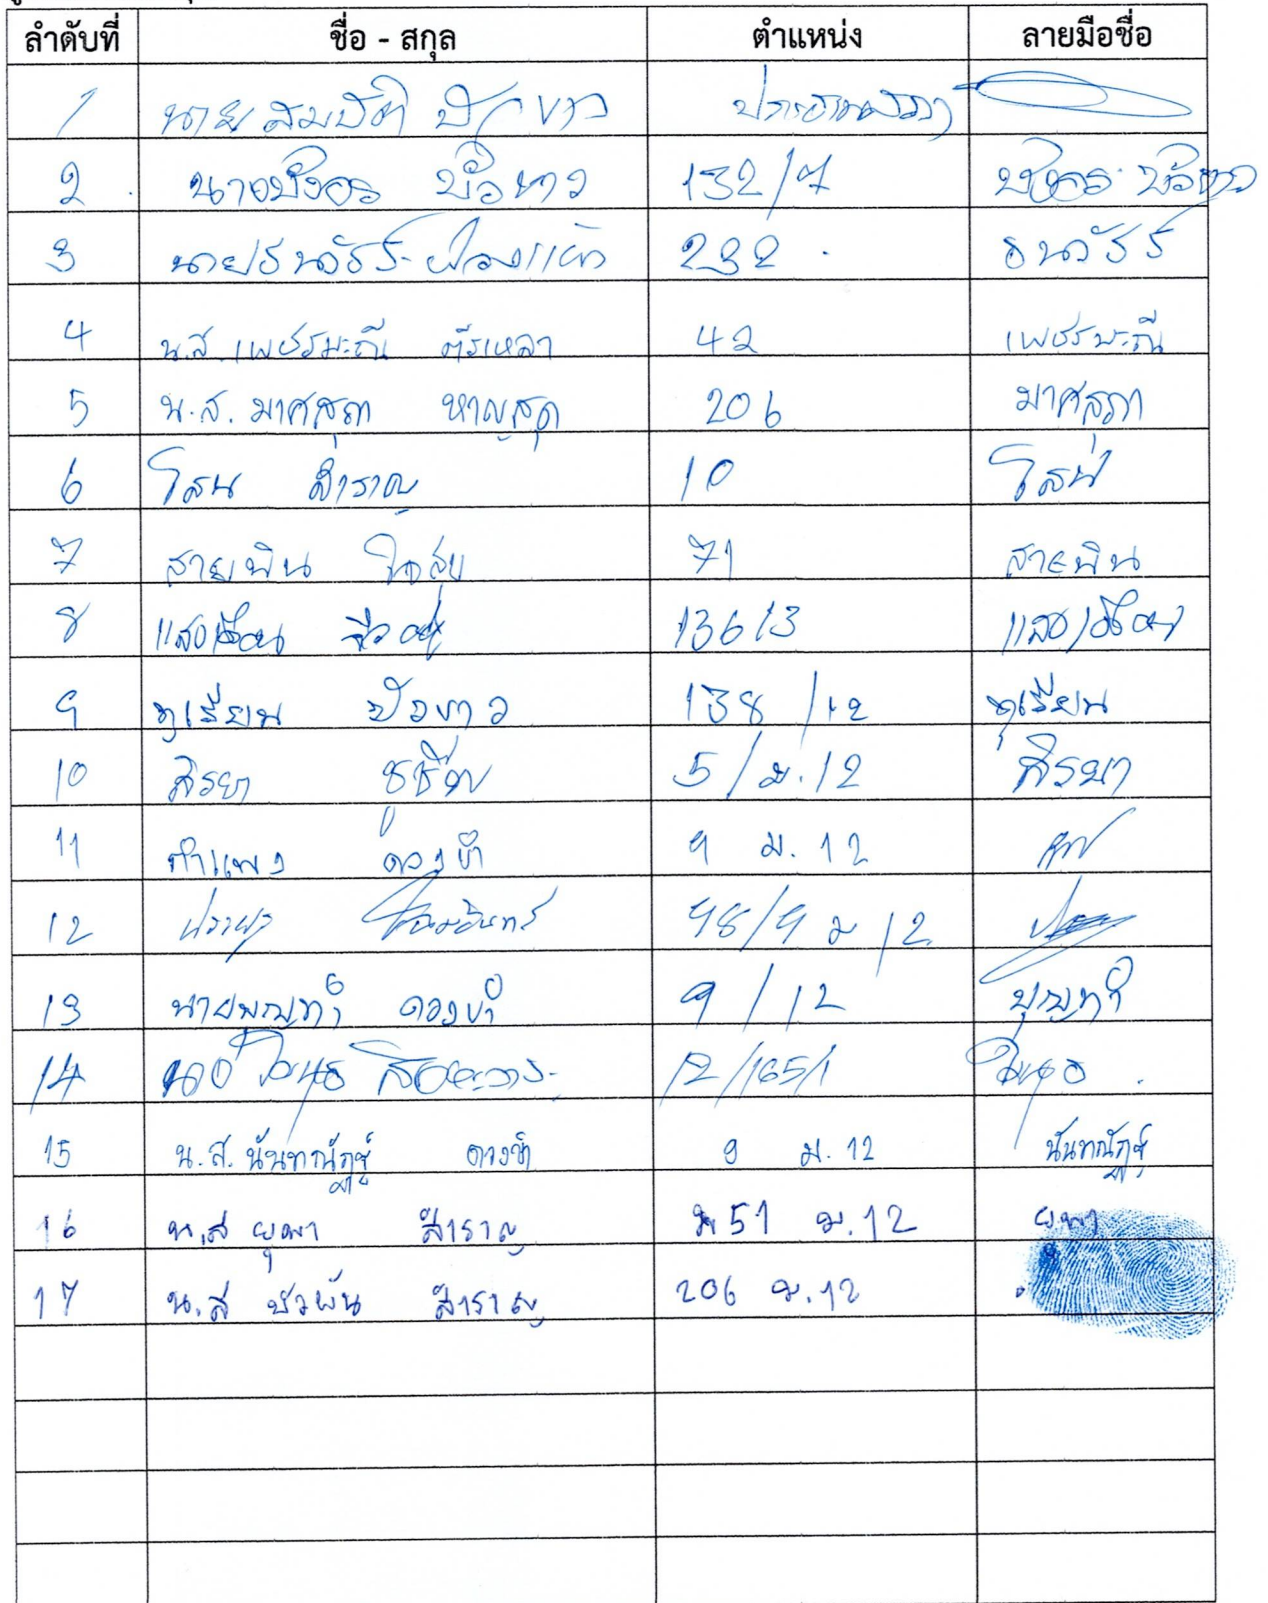 ลำดับที่ ชื่อ - สกุล ตำแหน่ง ลายมือชื่อ
1 นายสมบัติ บัวขาว ประธานสภา
2 นางบังอร บัวขาว 132/7 บังอร บัวขาว
3 นายธนวัธร์ 232 ธนวัธร์
4 น.ส. เพชรมะณี ศรีเหลา 42 เพชรมะณี
5 น.ส. มาศสุภา หาญสุด 206 มาศสุภา
6 โสน สำราญ 10 โสน
7 สายพิน 71 สายพิน
8 แสงเดือน 136/3 แสงเดือน
9 ทุเรียน บัวขาว 138/12 ทุเรียน
10 สิรยา 5/ม.12 สิรยา
11 คำแพง ดวงขำ 9 ม. 12
12 98/9 ม 12
13 นายบุญทำ ดวงขำ 9/12 บุญทำ
14 12/165/1
15 น.ส. นันทณัฏฐ์ ดวงขำ 9 ม. 12 นันทณัฏฐ์
16 น.ส ยุพา สำราญ 51 ม.12 ยุพา
17 น.ส บัวผัน สำราญ 206 ม.12